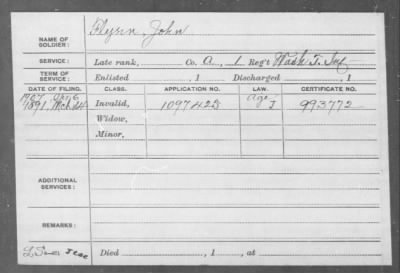 NAME OF SOLDIER: Flynn, John
SERVICE: Late rank, Co. A, 1 Reg't Wash. T. Inf
TERM OF SERVICE: Enlisted , 1 Discharged , 1
DATE OF FILING. CLASS. APPLICATION NO. LAW. CERTIFICATE NO.
1907 Apr 6 Age
1891, Mch 24 Invalid, 1097425 J 993772
Widow,
Minor,
ADDITIONAL SERVICES:
REMARKS:
Died , 1 , at